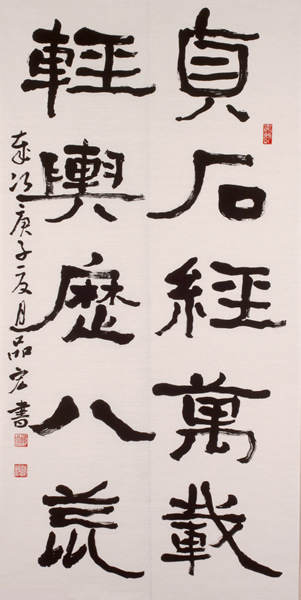 貞石經萬載
輕輿歷八荒
歲次庚子夏月品宏書